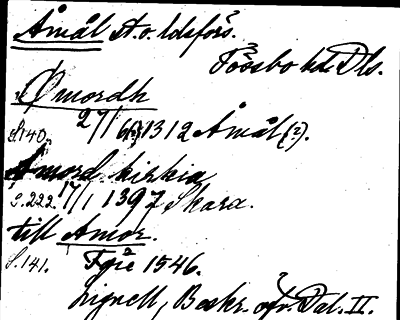 Åmål st. o. ldsförs.
Tössbo hd Dls.
Ømordh
S. 140. 27/1 1312 Åmål (?).
Amord kirkia
S. 222. 17/1 1397 Skara.
till Amor.
S. 141. 1546.
Lignell, Beskr. öfv. Dal. II.